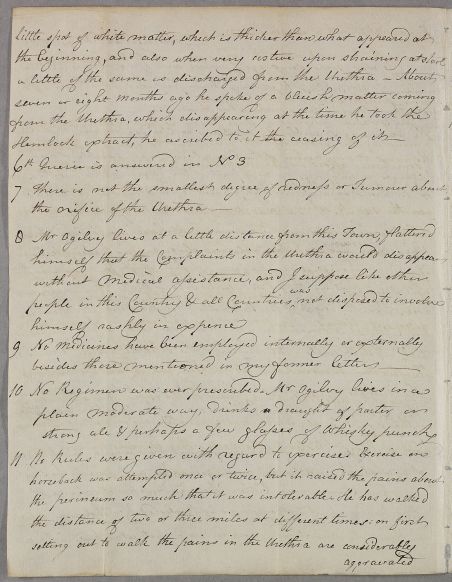 little spot of white matter, which is thicker than what appeared at
the beginning, and also when very costive upon straining at stool
a little of the same is discharged from the Urethra – About
seven or eight months ago he spoke of a bleish matter coming
from the Urethra, which disappearing at the time he took the
Hemlock extract, he ascribed to it the ceasing of it –
6th Querie is answered in No 3
7 There is not the smallest degree of redness or Tumour about
the orifice of the Urethra –
8 Mr Ogilvy lives at a little distance from this Town, flatter'd
himself that the Complaints in the Urethra would disappear
without Medical assistance, and I suppose like other
people in this Country & all Countries, was not disposed to involve
himself rashly in expence
9 No Medicines have been employed internally or externally
besides those mentioned in my former letters –
10 No Regimen was ever prescribed. Mr Ogilvy lives in a
plain moderate way, drinks a draught of porter or
strong ale & perhaps a few glasses of Whisky punch
11 No Rules were given with regard to exercise. Exercise on
horseback was attempted once or twice, but it raised the pains about
the perineum so much that it was intolerable. He has walked
the distance of two or three miles at different times: on first
setting out to walk the pains in the Urethra are considerably
aggravated